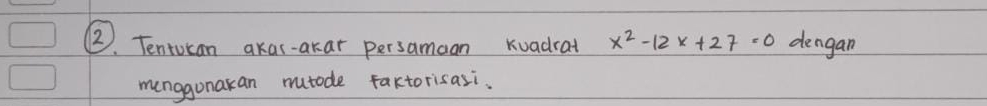 2. Tentukan akar-akar persamaan kuadrat x² - 12x + 27 = 0 dengan
menggunakan mutode faktorisasi.